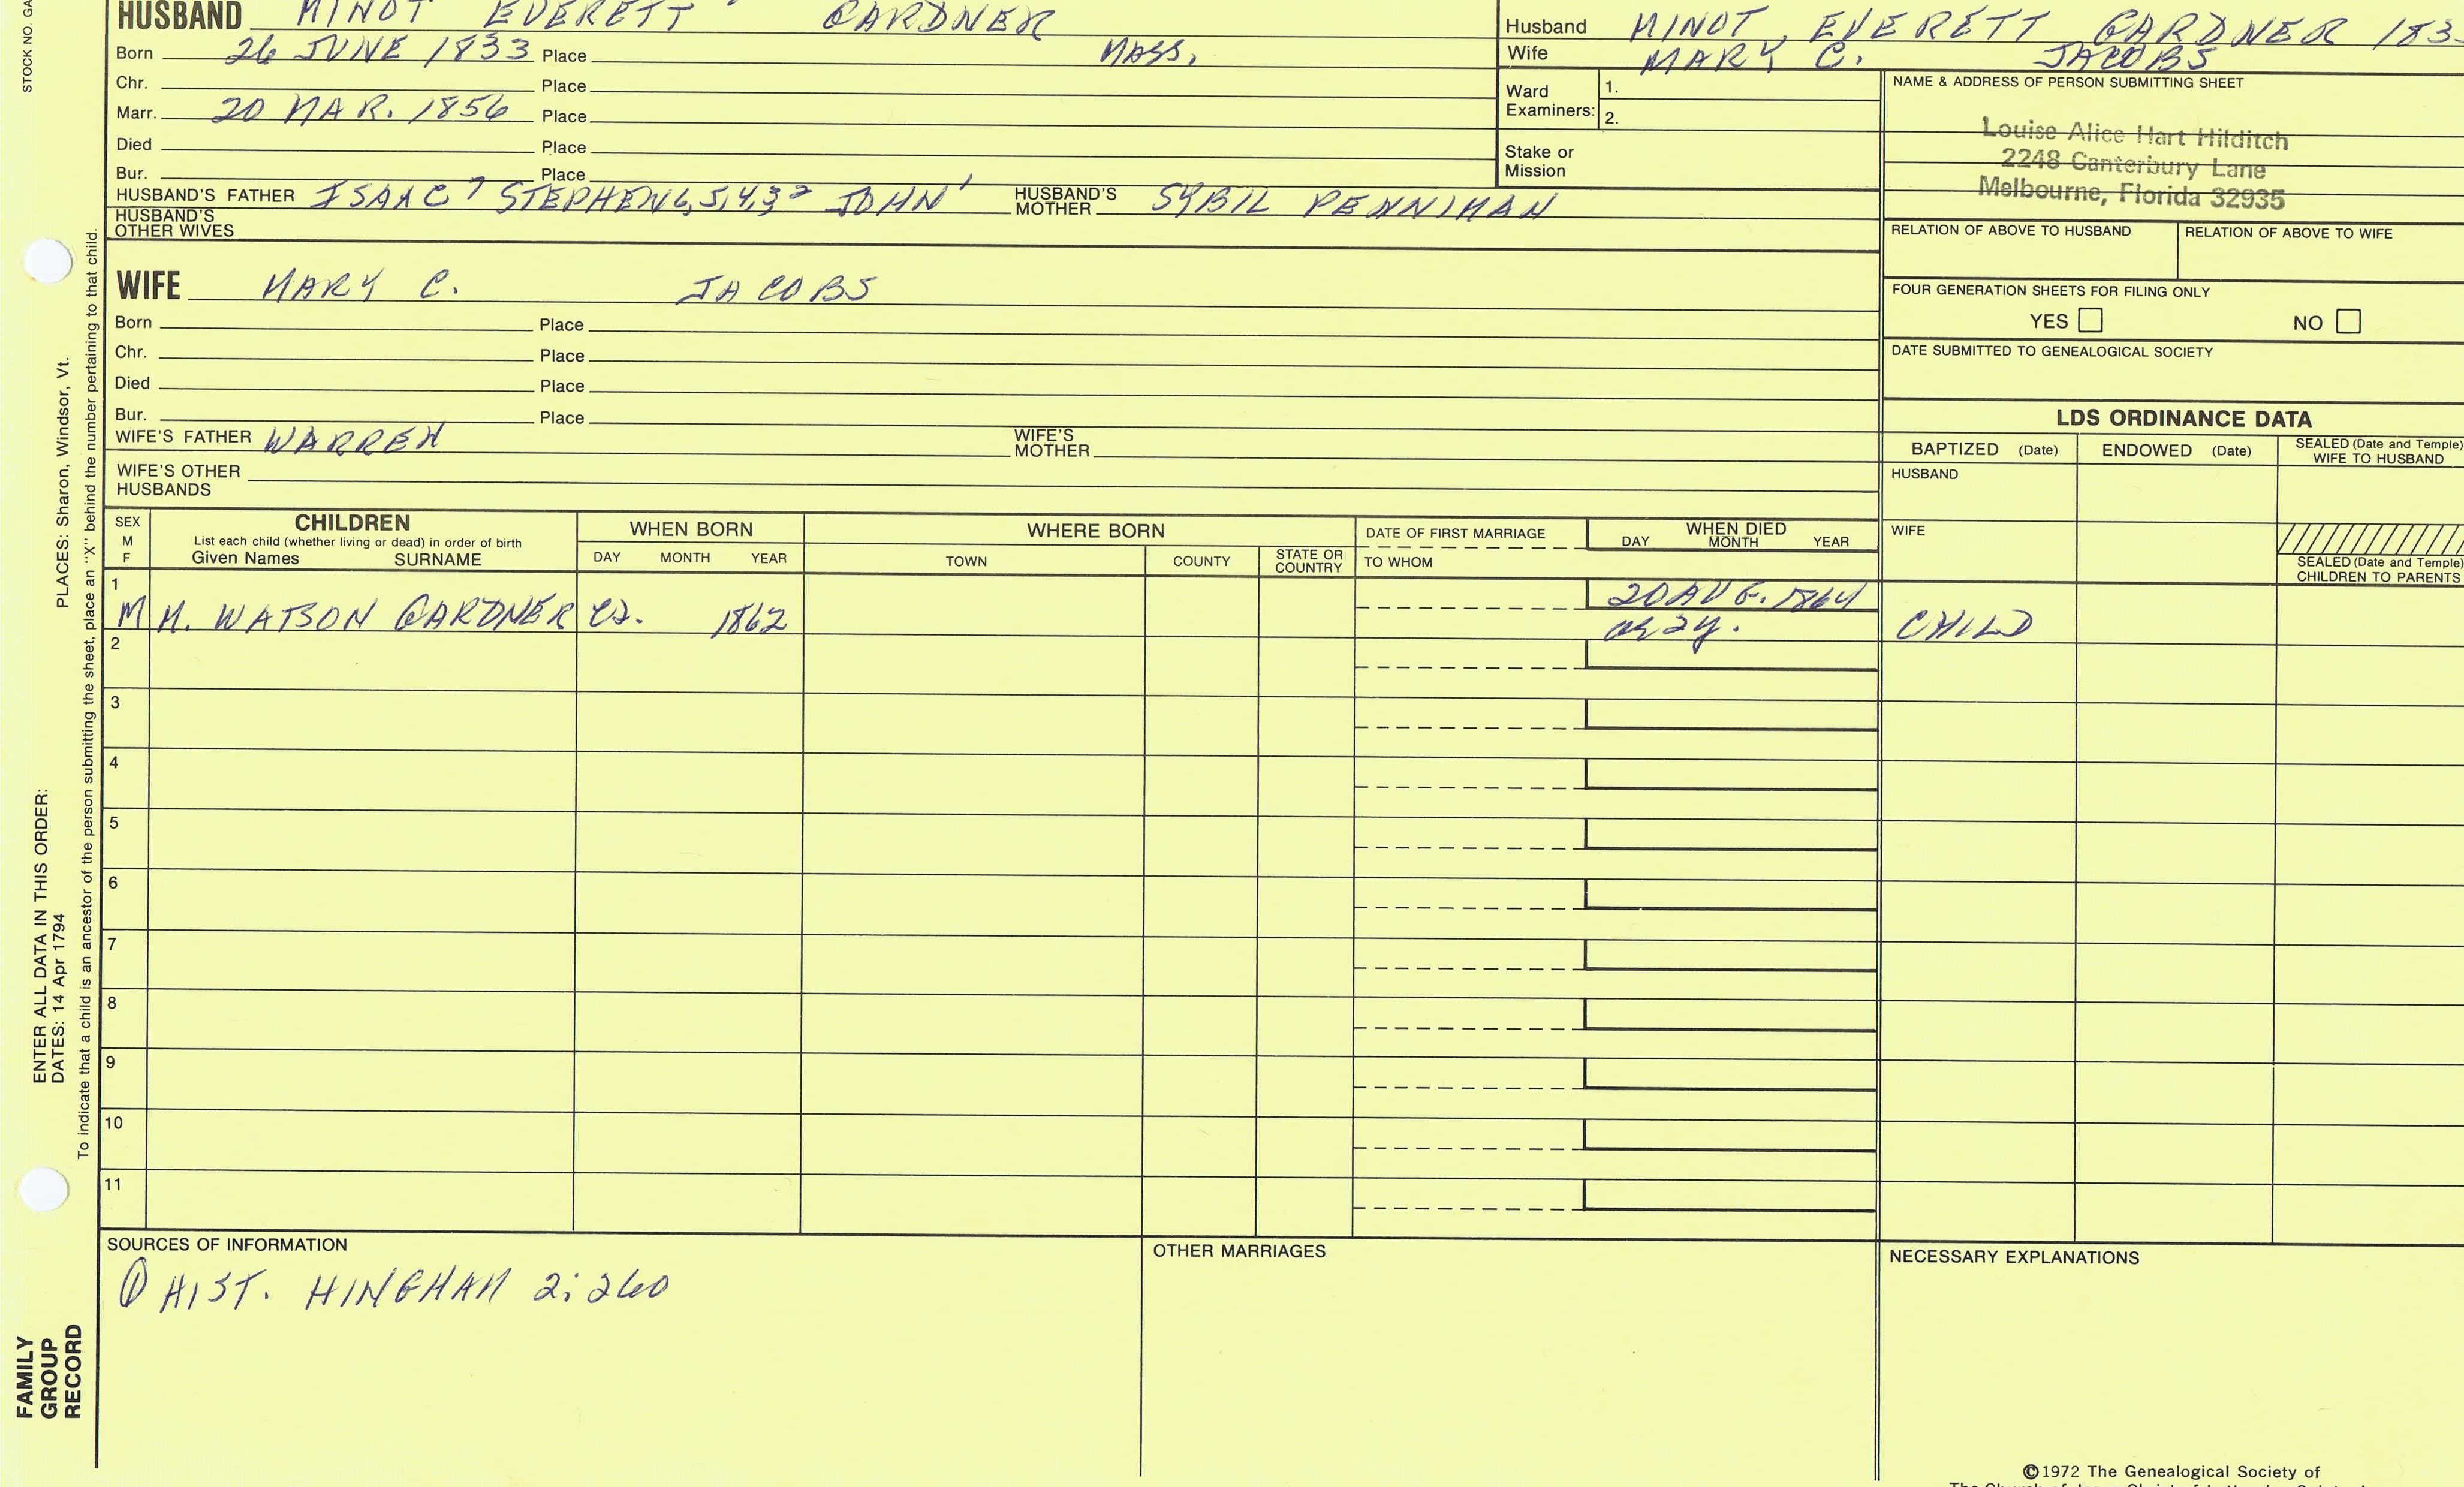 STOCK NO. GA
PLACES: Sharon, Windsor, Vt.
ENTER ALL DATA IN THIS ORDER:
DATES: 14 Apr 1794
To indicate that a child is an ancestor of the person submitting the sheet, place an "X" behind the number pertaining to that child.
FAMILY
GROUP
RECORD
HUSBAND MINOT EVERETT GARDNER
Born 26 JUNE 1833 Place MASS.
Chr. Place
Marr. 20 MAR. 1856 Place
Died Place
Bur. Place
HUSBAND'S FATHER ISAAC 7 STEPHEN 6,5,4,3 2 JOHN 1 HUSBAND'S MOTHER SYBIL PENNIMAN
HUSBAND'S
OTHER WIVES
Husband MINOT EVERETT GARDNER 183
Wife MARY C. JACOBS
Ward
Examiners: 1.
2.
Stake or
Mission
NAME & ADDRESS OF PERSON SUBMITTING SHEET
Louise Alice Hart Hilditch
2248 Canterbury Lane
Melbourne, Florida 32935
RELATION OF ABOVE TO HUSBAND RELATION OF ABOVE TO WIFE
FOUR GENERATION SHEETS FOR FILING ONLY
YES NO
DATE SUBMITTED TO GENEALOGICAL SOCIETY
WIFE MARY C. JACOBS
Born Place
Chr. Place
Died Place
Bur. Place
WIFE'S FATHER WARREN WIFE'S MOTHER
WIFE'S OTHER
HUSBANDS
LDS ORDINANCE DATA
BAPTIZED (Date) ENDOWED (Date) SEALED (Date and Temple)
WIFE TO HUSBAND
HUSBAND
WIFE
SEALED (Date and Temple)
CHILDREN TO PARENTS
SEX
M
F
CHILDREN
List each child (whether living or dead) in order of birth
Given Names SURNAME
WHEN BORN
DAY MONTH YEAR
WHERE BORN
TOWN COUNTY STATE OR COUNTRY
DATE OF FIRST MARRIAGE
TO WHOM
WHEN DIED
DAY MONTH YEAR
1
M H. WATSON GARDNER 1862 20 AUG. 1864
2y. CHILD
2
3
4
5
6
7
8
9
10
11
SOURCES OF INFORMATION
① HIST. HINGHAM 2:260
OTHER MARRIAGES
NECESSARY EXPLANATIONS
©1972 The Genealogical Society of